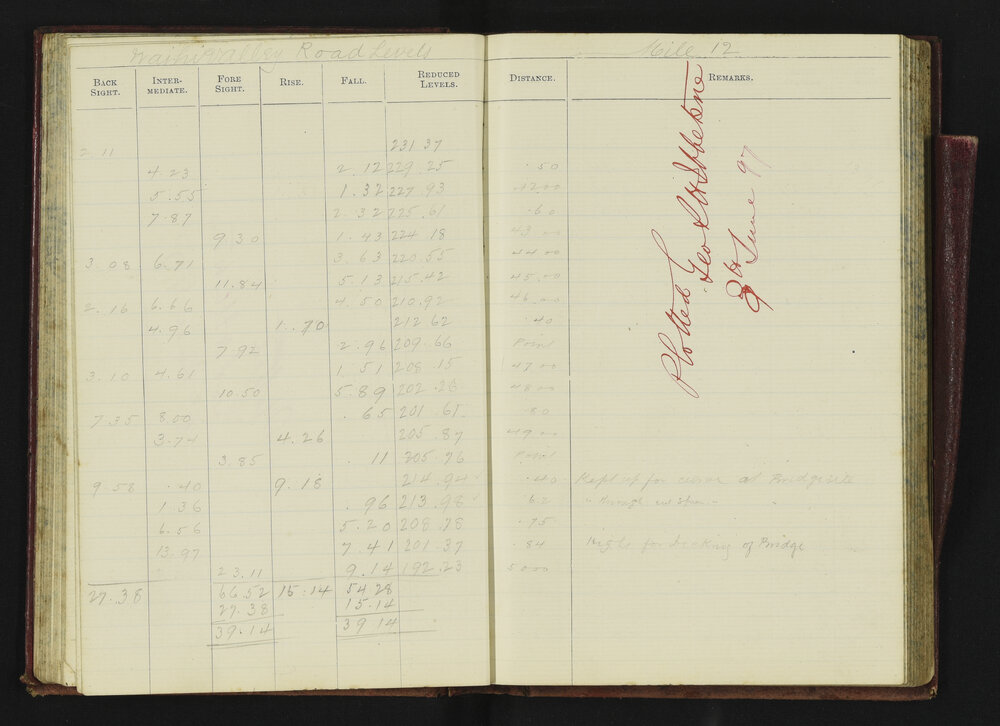 Waihi Valley Road Levels Mile 12
BACK SIGHT. INTER-MEDIATE. FORE SIGHT. RISE. FALL. REDUCED LEVELS. DISTANCE. REMARKS.
2.11 231 37
4.23 2.12 229.25 .50
5.55 1.32 227 93 4200
7.87 2.32 225.61 .60
9.30 1.43 224 18 43.00
3.08 6.71 3.63 220.55 44.00
11.84 5.13 215.42 45.00
2.16 6.66 4.50 210.92 46.00
4.96 1.70 212 62 .40
7 92 2.96 209.66 Point
3.10 4.61 1 51 208.15 47 00
10.50 5.89 202.26 48 00
7.35 8.00 .65 201.61 .80
3.74 4.26 205.87 49 00
3.85 .11 205.76 Point
9.58 .40 9.18 214.94 .40 Kept up for curve at Bridgesite
1 36 .96 213.98 .62 " through
6.56 5.20 208.78 .75
13.97 7.41 201.37 .84 Height for decking of Bridge
23.11 9.14 192.23 5000
27.38 66.52 15.14 54 28
27.38 15.14
39.14 39.14
Plotted Geo
9th June 97